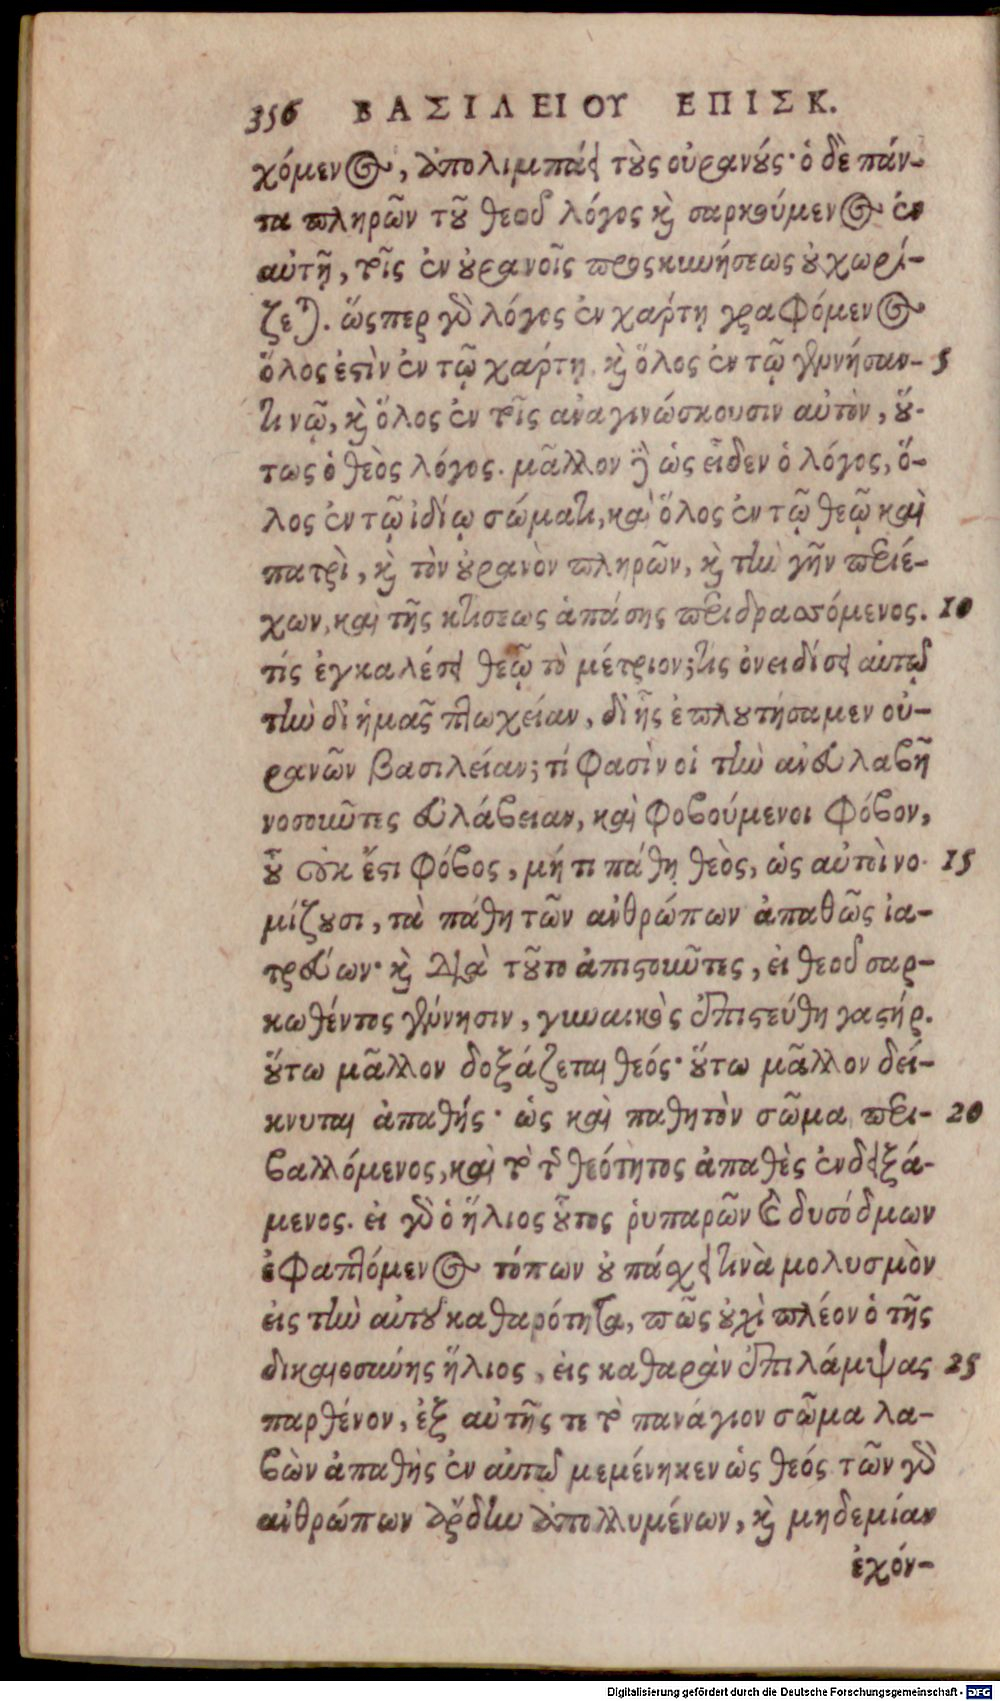 356 ΒΑΣΙΛΕΙΟΥ ΕΠΙΣΚ.
χόμενος, ἀπολιμπάνει τοὺς οὐρανούς· ὁ δὲ πάν-
τα πληρῶν τοῦ θεοῦ λόγος καὶ σαρκούμενος ἐν
αὐτῇ, τοῖς ἐν οὐρανοῖς προσκυνήσεως οὐ χωρί-
ζεται. ὥσπερ γὰρ λόγος ἐν χάρτῃ γραφόμενος
ὅλος ἐστὶν ἐν τῷ χάρτῃ, καὶ ὅλος ἐν τῷ γεννήσαν- 5
τι νῷ, καὶ ὅλος ἐν τοῖς ἀναγινώσκουσιν αὐτὸν, οὕ-
τως ὁ θεὸς λόγος. μᾶλλον δὲ ὡς εἶδεν ὁ λόγος, ὅ-
λος ἐν τῷ ἰδίῳ σώματι, καὶ ὅλος ἐν τῷ θεῷ καὶ
πατρὶ, καὶ τὸν οὐρανὸν πληρῶν, καὶ τὴν γῆν περιέ-
χων, καὶ τῆς κτίσεως ἁπάσης περιδρασσόμενος. 10
τίς ἐγκαλέσει θεῷ τὸ μέτριον; τίς ὀνειδίσει αὐτῷ
τὴν δι' ἡμᾶς πτωχείαν, δι' ἧς ἐπλουτήσαμεν οὐ-
ρανῶν βασιλείαν; τί φασὶν οἱ τὴν ἀνευλαβῆ
νοσοῦντες εὐλάβειαν, καὶ φοβούμενοι φόβον,
οὗ οὐκ ἔστι φόβος, μή τι πάθῃ θεὸς, ὡς αὐτοὶ νο- 15
μίζουσι, τὰ πάθη τῶν ἀνθρώπων ἀπαθῶς ἰα-
τρεύων· καὶ διὰ τοῦτο ἀπιστοῦντες, εἰ θεοῦ σαρ-
κωθέντος γέννησιν, γυναικὸς ἐπιστεύθη γαστήρ.
οὕτω μᾶλλον δοξάζεται θεός· οὕτω μᾶλλον δεί-
κνυται ἀπαθής· ὡς καὶ παθητὸν σῶμα περι- 20
βαλλόμενος, καὶ τὸ τῆς θεότητος ἀπαθὲς ἐνδειξά-
μενος. εἰ γὰρ ὁ ἥλιος οὗτος ῥυπαρῶν καὶ δυσόδμων
ἐφαπτόμενος τόπων οὐ πάσχει τινὰ μολυσμὸν
εἰς τὴν αὐτοῦ καθαρότητα, πῶς οὐχὶ πλέον ὁ τῆς
δικαιοσύνης ἥλιος, εἰς καθαρὰν ἐπιλάμψας 25
παρθένον, ἐξ αὐτῆς τε τὸ πανάγιον σῶμα λα-
βὼν ἀπαθὴς ἐν αὐτῷ μεμένηκεν ὡς θεός. τῶν γὰρ
ἀνθρώπων ἄρδην ἀπολλυμένων, καὶ μηδεμίαν
ἐχόν-
Digitalisierung gefördert durch die Deutsche Forschungsgemeinschaft - DFG